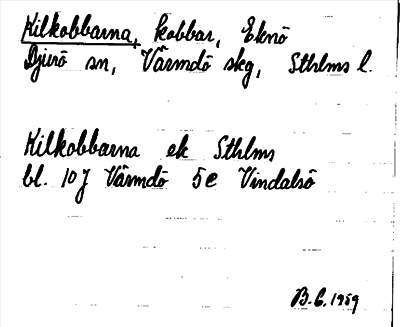 Kilkobbarna, kobbar, Eknö
Djurö sn, Värmdö skg, Sthlms l.
Kilkobbarna ek Sthlms
bl. 10 J Värmdö 5e Vindalsö
B.C. 1959